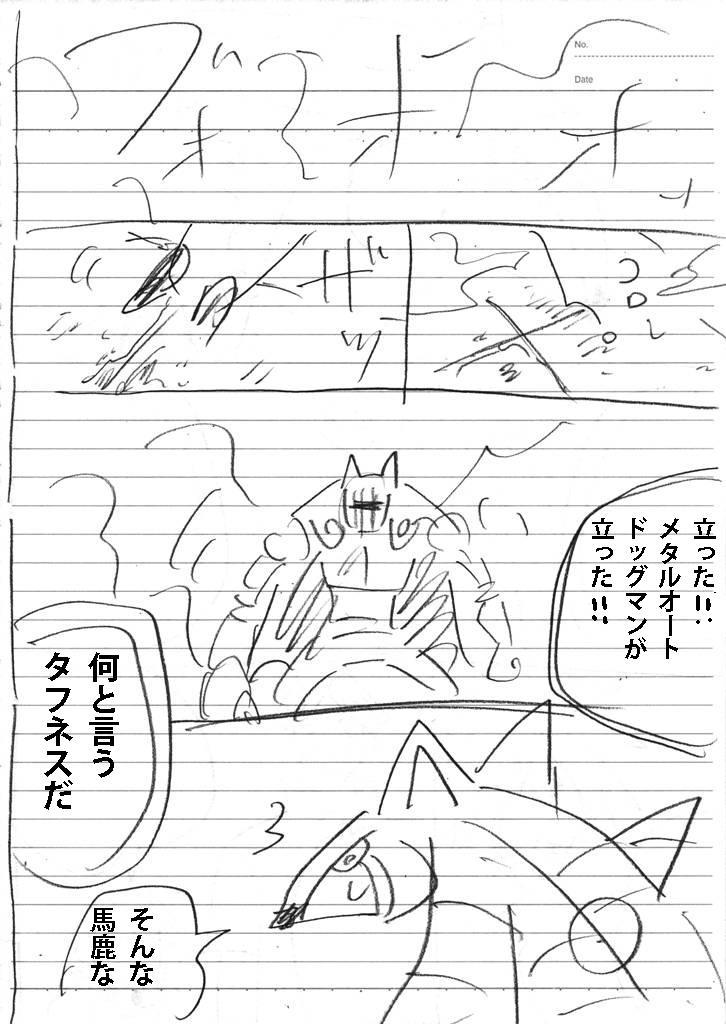 No.
Date
ブォーオーオ
ザッ
コロ
立った!!
メタルオート
ドッグマンが
立った!!
何と言う
タフネスだ
そんな
馬鹿な